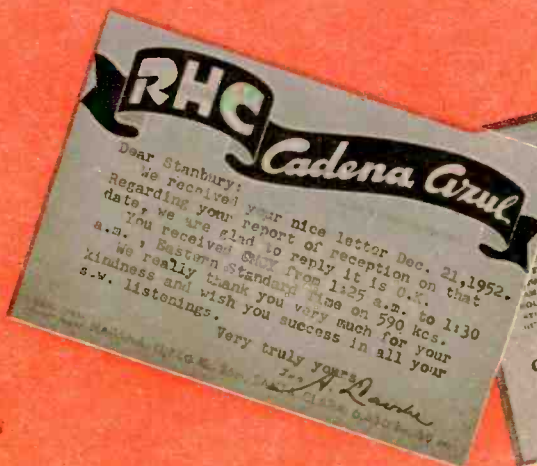 RHC
Cadena Azul
Dear Stanbury:
We received your nice letter Dec. 21,1952.
Regarding your report of reception on that
date, we are glad to reply it is O.K.
You received from 1:25 a.m. to 1:30
a.m., Eastern Standard Time on 590 kcs.
We really thank you very much for your
kindness and wish you success in all your
s.w. listenings.
Very truly yours,